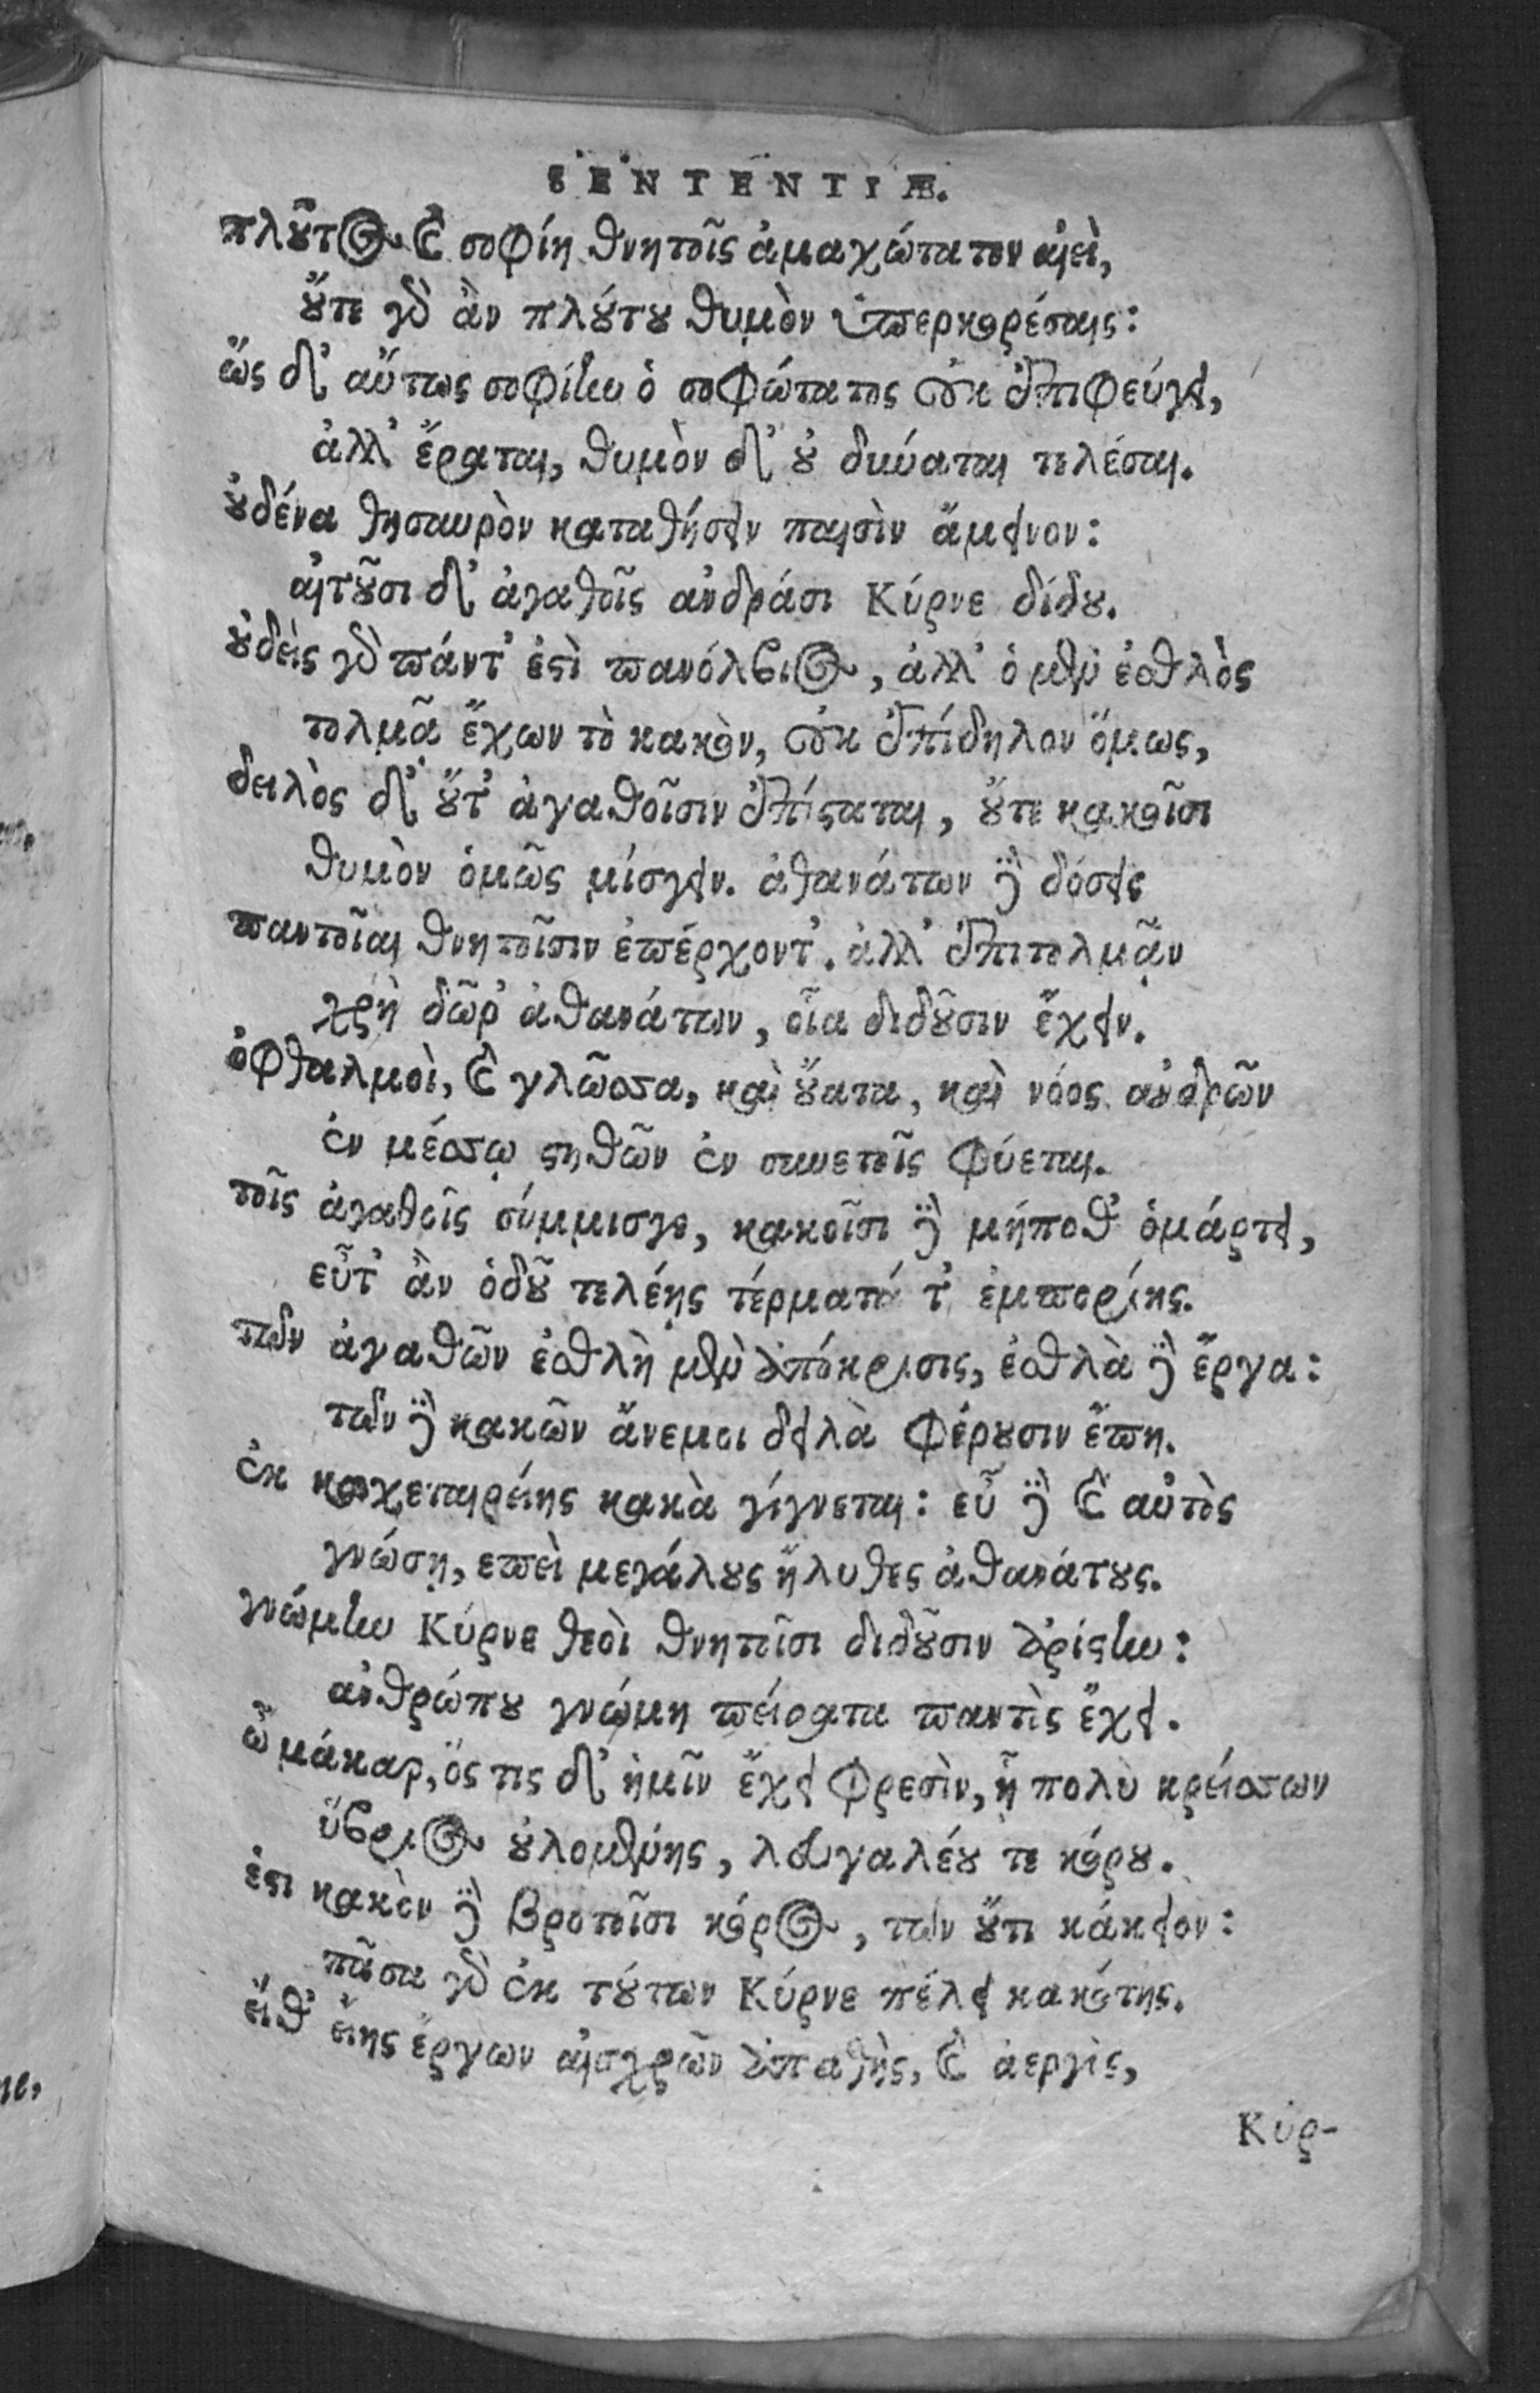 SENTENTIÆ.
πλοῦτος καὶ σοφίη θνητοῖς ἀμαχώτατον αἰεὶ,
οὔτε γὰρ ἂν πλούτου θυμὸν ὑπερκορέσαις:
ὣς δ' αὔτως σοφίην ὁ σοφώτατος οὐκ ἐπιφεύγει,
ἀλλ' ἔραται, θυμὸν δ' οὐ δύναται τελέσαι.
οὐδένα θησαυρὸν καταθήσειν παισὶν ἄμεινον:
αἰτοῦσι δ' ἀγαθοῖς ἀνδράσι Κύρνε δίδου.
οὐδεὶς γὰρ πάντ' ἐστὶ πανόλβιος, ἀλλ' ὁ μὲν ἐσθλὸς
τολμᾶ ἔχων τὸ κακὸν, οὐκ ἐπίδηλον ὅμως,
δειλὸς δ' οὔτ' ἀγαθοῖσιν ἐπίσταται, οὔτε κακοῖσι
θυμὸν ὁμῶς μίσγειν. ἀθανάτων δὲ δόσεις
παντοῖαι θνητοῖσιν ἐπέρχοντ'. ἀλλ' ἐπιτολμᾶν
χρὴ δῶρ' ἀθανάτων, οἷα διδοῦσιν ἔχειν.
ὀφθαλμοὶ, καὶ γλῶσσα, καὶ οὔατα, καὶ νόος ἀνδρῶν
ἐν μέσσῳ στηθῶν ἐν συνετοῖς φύεται.
τοῖς ἀγαθοῖς σύμμισγε, κακοῖσι δὲ μήποθ' ὁμάρτει,
εὖτ' ἂν ὁδοῦ τελέῃς τέρματά τ' ἐμπορίης.
τῶν ἀγαθῶν ἐσθλὴ μὲν ἀπόκρισις, ἐσθλὰ δὲ ἔργα:
τῶν δὲ κακῶν ἄνεμοι δειλὰ φέρουσιν ἔπη.
ἐκ καχεταιρείης κακὰ γίγνεται: εὖ δὲ καὶ αὐτὸς
γνώσῃ, ἐπεὶ μεγάλους ἤλυθες ἀθανάτους.
γνώμην Κύρνε θεοὶ θνητοῖσι διδοῦσιν ἀρίστην:
ἀνθρώπου γνώμη πείρατα παντὸς ἔχει.
ὦ μάκαρ, ὅς τις δ' ἡμῖν ἔχει φρεσὶν, ἦ πολὺ κρείσσων
ὕβριος οὐλομένης, λευγαλέου τε κόρου.
ἔστι κακὸν δὲ βροτοῖσι κόρος, τῶν οὔτι κάκειον:
πᾶσα γὰρ ἐκ τούτων Κύρνε πέλει κακότης.
εἴθ' εἴης ἔργων αἰσχρῶν ἀπαθὴς, καὶ ἀεργὸς,
Κύρ-